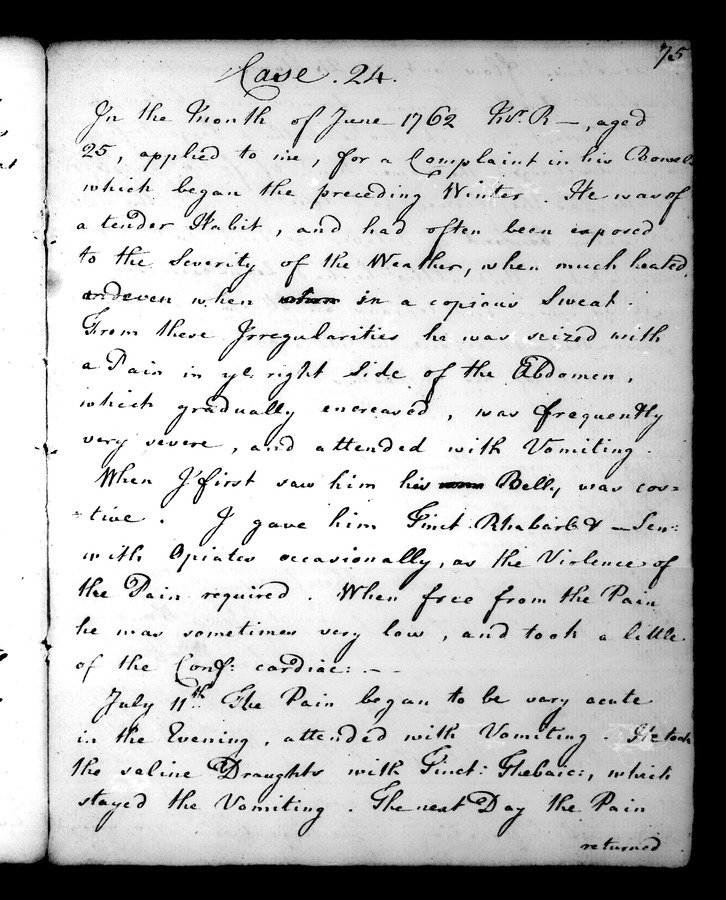 75
Case . 24.
In the Month of June 1762 Mr. R—, aged
25, applied to me, for a Complaint in his Bowels
which began the preceding Winter. He was of
a tender Habit, and had often been exposed
to the Severity of the Weather, when much heated,
and even when in a copious Sweat.
From these Irregularities he was seized with
a Pain in ye right Side of the Abdomen,
which gradually encreased, was frequently
very severe, and attended with Vomiting.
When I first saw him his Belly was cos=
tive. I gave him Tinct. Rhabarb & — Sen:
with Opiates occasionally, as the Violence of
the Pain required. When free from the Pain
he was sometimes very low, and took a little
of the Conf: cardiac: - -
July 11th The Pain began to be very acute
in the Evening, attended with Vomiting. He took
the saline Draughts with Tinct: Thebaic:, which
stayed the Vomiting. The next Day the Pain
returned